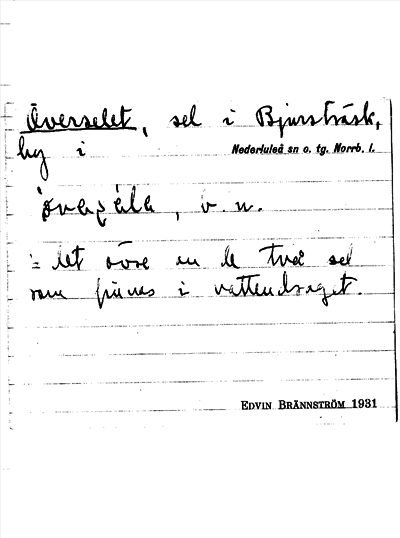 Överselet, sel i Bjursträsk,
by i Nederluleå sn o. tg. Norrb. l.
v. n.
= det övre av de två sel
som finnes i vattendraget.
EDVIN BRÄNNSTRÖM 1931